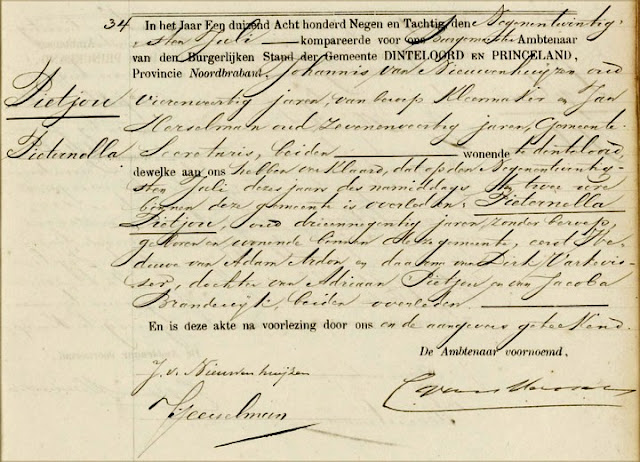 34
In het Jaar Een duizend Acht honderd Negen en Tachtig, den Negenentwintig-
sten Juli — kompareerde voor ons Burgemeester Ambtenaar
van den Burgerlijken Stand der Gemeente DINTELOORD EN PRINCELAND,
Provincie Noordbraband, Johannis van Nieuwenhuijzen oud
vierenveertig jaren, van beroep Kleermaker en Jan
Heeselman oud zevenenveertig jaren, Gemeente
Secretaris, beiden — wonende te dinteloord,
dewelke aan ons hebben verklaard, dat op den Negenentwintig-
sten Juli dezes jaars des namiddags ten twee ure
binnen deze gemeente is overleden: Pieternella
Pietjou, oud drieennegentig jaren, zonder beroep,
geboren en wonende binnen deze gemeente, eerst We-
duwe van Adam Ardon en daarna van Dirk Varkevis-
ser, dochter van Adriaan Pietjou en van Jacoba
Brandwijk, beiden overleden
En is deze akte na voorlezing door ons en de aangevers geteekend.
De Ambtenaar voornoemd,
Pietjou
Pieternella
J. v. Nieuwenhuijzen
J Heeselman